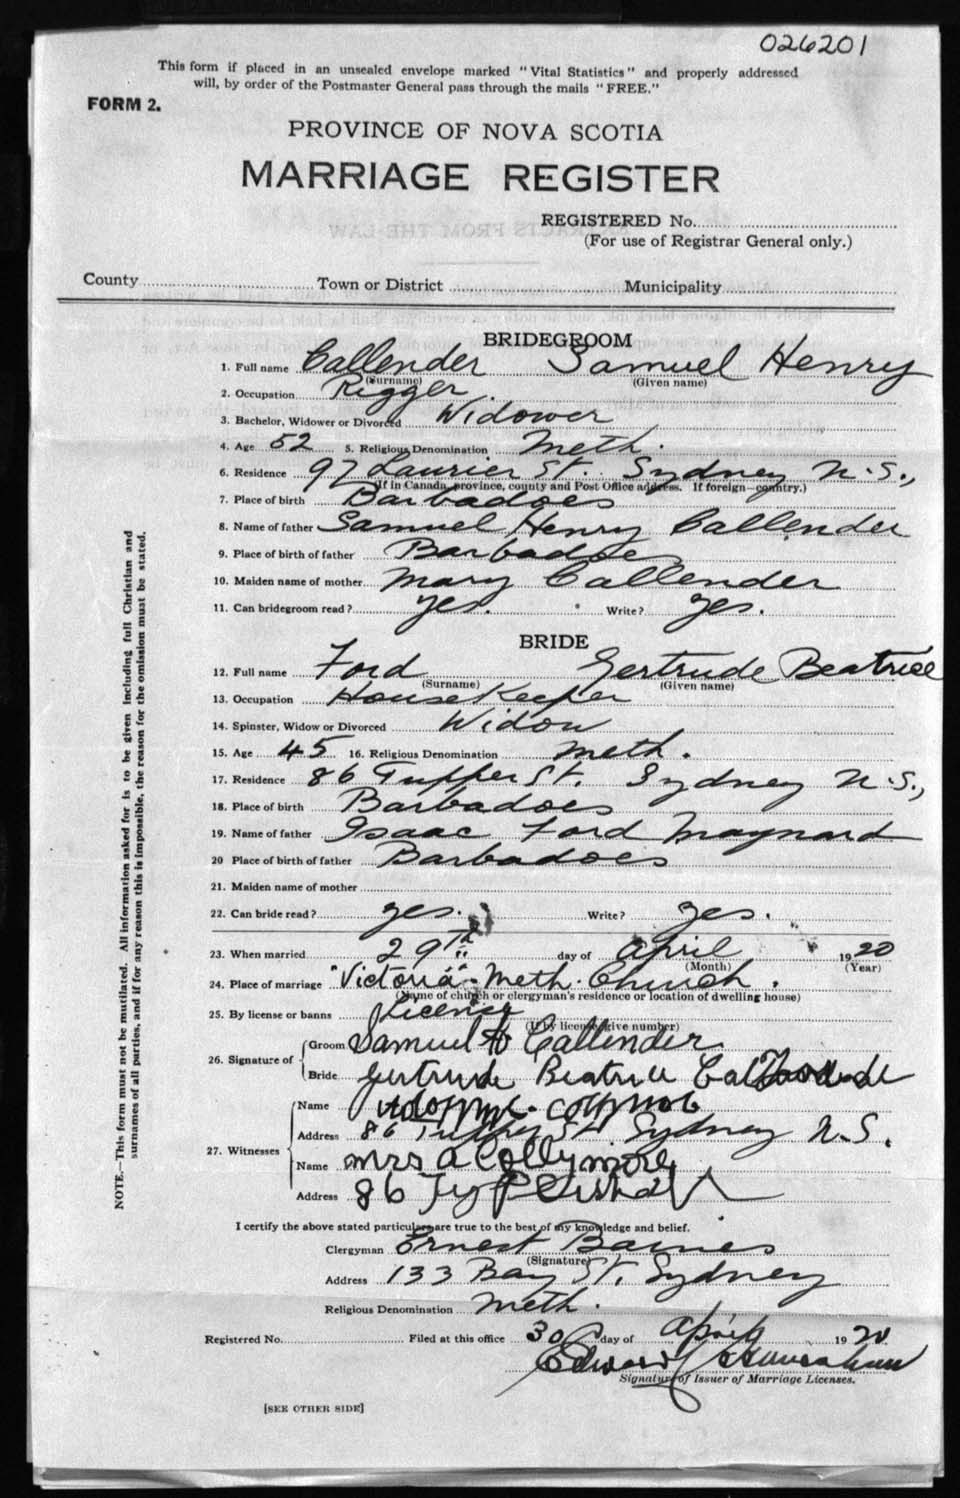 026201
This form if placed in an unsealed envelope marked "Vital Statistics" and properly addressed
will, by order of the Postmaster General pass through the mails "FREE."
FORM 2.
PROVINCE OF NOVA SCOTIA
MARRIAGE REGISTER
REGISTERED No.
(For use of Registrar General only.)
County Town or District Municipality
BRIDEGROOM
1. Full name Callender Samuel Henry
(Surname) (Given name)
2. Occupation Rigger.
3. Bachelor, Widower or Divorced Widower
4. Age 52 5. Religious Denomination Meth.
6. Residence 97 Laurier St. Sydney N.S.,
(If in Canada, province, county and Post Office address. If foreign—country.)
7. Place of birth Barbadoes
8. Name of father Samuel Henry Callender
9. Place of birth of father Barbadoes
10. Maiden name of mother Mary Callender
11. Can bridegroom read? yes. Write? yes.
BRIDE
12. Full name Ford Gertrude Beatrice
(Surname) (Given name)
13. Occupation HouseKeeper
14. Spinster, Widow or Divorced Widow
15. Age 45 16. Religious Denomination Meth.
17. Residence 86 Tupper St. Sydney N.S.,
18. Place of birth Barbadoes
19. Name of father Isaac Ford Maynard
20 Place of birth of father Barbadoes
21. Maiden name of mother
22. Can bride read? yes. Write? yes.
23. When married 29th day of April 1920
(Month) (Year)
24. Place of marriage "Victoria" Meth. Church.
(Name of church or clergyman's residence or location of dwelling house)
25. By license or banns License
(If by license give number)
26. Signature of Groom Samuel H Callender
Bride Gertrude Beatrice
27. Witnesses Name
Address 86 Tupper St. Sydney N.S.
Name Mrs A Collymore
Address 86
I certify the above stated particulars are true to the best of my knowledge and belief.
Clergyman Ernest Barnes
(Signature)
Address 133 Bay St. Sydney
Religious Denomination Meth.
Registered No. Filed at this office 30 day of April 1920
Edward
Signature of Issuer of Marriage Licenses.
[SEE OTHER SIDE]
NOTE.—This form must not be mutilated. All information asked for is to be given including full Christian and
surnames of all parties, and if for any reason this is impossible, the reason for the omission must be stated.